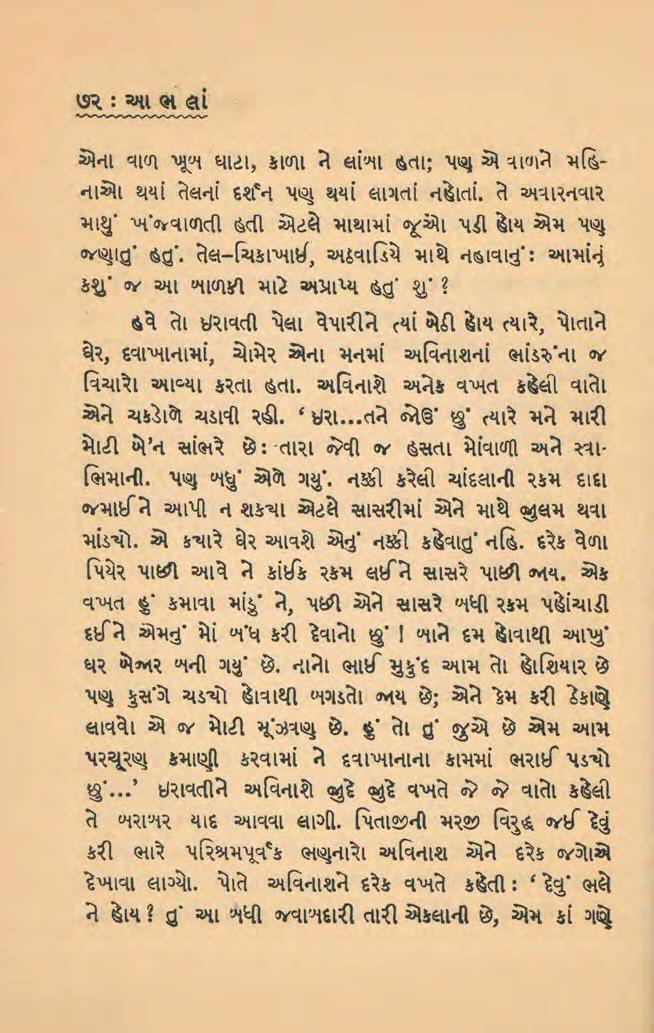 ૭૨ : આ ભ લાં
એના વાળ ખૂબ ઘાટા, કાળા ને લાંબા હતા; પણ એ વાળને મહિ-
નાઓ થયાં તેલનાં દર્શન પણ થયાં લાગતાં નહોતાં. તે અવારનવાર
માથું ખંજવાળતી હતી એટલે માથામાં જૂઓ પડી હોય એમ પણ
જણાતું હતું. તેલ–ચિકાખાઈ, અઠવાડિયે માથે નહાવાનું : આમાંનું
કશું જ આ બાળકી માટે અપ્રાપ્ય હતું શું ?
હવે તો ઇરાવતી પેલા વેપારીને ત્યાં બેઠી હોય ત્યારે, પોતાને
ઘેર, દવાખાનામાં, ચોમેર એના મનમાં અવિનાશનાં ભાંડરુંના જ
વિચારો આવ્યા કરતા હતા. અવિનાશે અનેક વખત કહેલી વાતો
એને ચકડોળે ચડાવી રહી. ‘ ઇરા...તને જોઉં છું ત્યારે મને મારી
મોટી બે'ન સાંભરે છે : તારા જેવી જ હસતા મોંવાળી અને સ્વા-
ભિમાની. પણ બધું એળે ગયું. નક્કી કરેલી ચાંદલાની રકમ દાદા
જમાઈને આપી ન શકયા એટલે સાસરીમાં એને માથે જુલમ થવા
માંડયો. એ કયારે ઘેર આવશે એનું નક્કી કહેવાતું નહિ. દરેક વેળા
પિયેર પાછી આવે ને કાંઈક રકમ લઈને સાસરે પાછી જાય. એક
વખત હું કમાવા માંડું ને, પછી એને સાસરે બધી રકમ પહોંચાડી
દઈને એમનું મોં બંધ કરી દેવાનો છું ! બાને દમ હોવાથી આખું
ઘર બેજાર બની ગયું છે. નાનો ભાઈ મુકુંદ આમ તો હોશિયાર છે
પણ કુસંગે ચડયો હોવાથી બગડતો જાય છે; એને કેમ કરી ઠેકાણે
લાવવો એ જ મોટી મૂંઝવણ છે. હું તો તું જુએ છે એમ આમ
પરચૂરણ કમાણી કરવામાં ને દવાખાનાના કામમાં ભરાઈ પડયો
છું...’ ઇરાવતીને અવિનાશે જુદે જુદે વખતે જે જે વાતો કહેલી
તે બરાબર યાદ આવવા લાગી. પિતાજીની મરજી વિરુદ્ધ જઈ દેવું
કરી ભારે પરિશ્રમપૂર્વક ભણનારો અવિનાશ એને દરેક જગોએ
દેખાવા લાગ્યો. પોતે અવિનાશને દરેક વખતે કહેતી : ‘ દેવું ભલે
ને હોય ? તું આ બધી જવાબદારી તારી એકલાની છે, એમ કાં ગણે